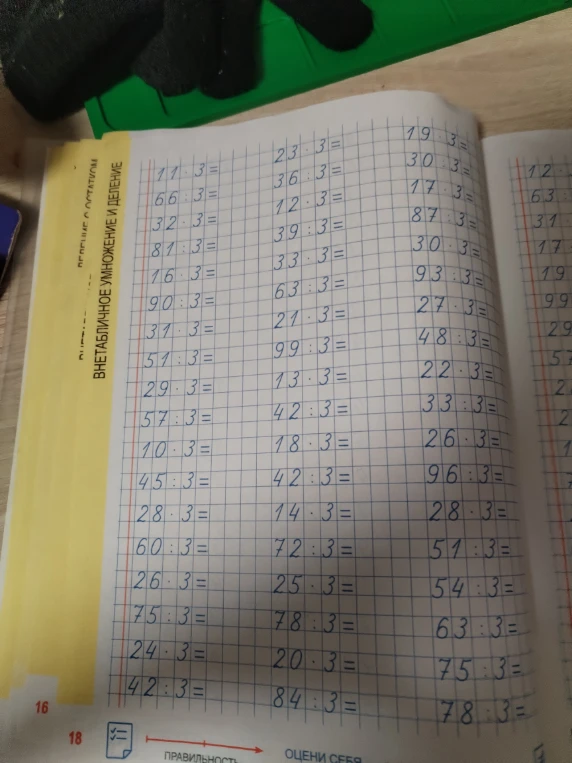 ВНЕТАБЛИЧНОЕ УМНОЖЕНИЕ И ДЕЛЕНИЕ
11 · 3 =
66 : 3 =
32 · 3 =
81 : 3 =
16 · 3 =
90 : 3 =
31 · 3 =
51 : 3 =
29 · 3 =
57 : 3 =
10 · 3 =
45 : 3 =
28 · 3 =
60 : 3 =
26 · 3 =
75 : 3 =
24 · 3 =
42 : 3 =
23 · 3 =
36 : 3 =
12 · 3 =
39 : 3 =
33 · 3 =
63 : 3 =
21 · 3 =
99 : 3 =
13 · 3 =
42 : 3 =
18 · 3 =
42 : 3 =
14 · 3 =
72 : 3 =
25 · 3 =
78 : 3 =
20 · 3 =
84 : 3 =
19 · 3 =
30 : 3 =
17 · 3 =
87 : 3 =
30 · 3 =
93 : 3 =
27 · 3 =
48 : 3 =
22 · 3 =
33 : 3 =
26 · 3 =
96 : 3 =
28 · 3 =
51 : 3 =
54 : 3 =
63 : 3 =
75 : 3 =
78 : 3 =
12
63
31
17
19
99
16
18
ОЦЕНИ СЕБЯ